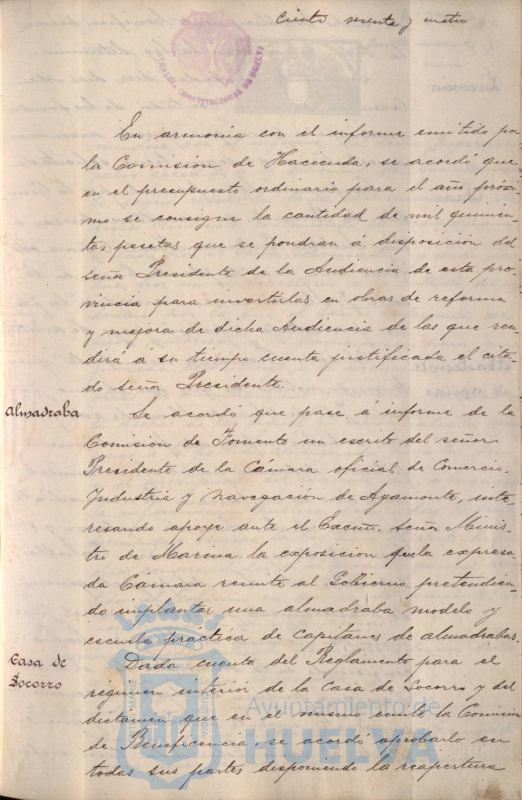 Ciento sesenta y cuatro
ALCALDIA CONSTITUCIONAL DE HUELVA
En armonia con el informe emitido por
la Comision de Hacienda, se acordó que
en el presupuesto ordinario para el año próxi-
mo se consigne la cantidad de mil quinien-
tas pesetas que se pondran á disposición del
señor Presidente de la Audiencia de esta pro-
vincia para invertirlas en obras de reforma
y mejora de dicha Audiencia de las que ren-
dirá á su tiempo cuenta justificada el cita-
do señor Presidente.
Almadraba
Se acordó que pase á informe de la
Comision de Fomento un escrito del señor
Presidente de la Cámara oficial de Comercio,
Industria y Navegación de Ayamonte, inte-
resando apoye ante el Excmo. Señor Minis-
tro de Marina la exposicion que la expresa-
da Cámara remite al Gobierno pretendien-
do implantar una almadraba modelo y
escuela práctica de Capitanes de almadrabas.
Casa de
Socorro
Dada cuenta del Reglamento para el
régimen interior de la Casa de Socorro y del
dictamen que en el mismo emite la Comision
de Beneficencia, se acordó aprobarlo en
todas sus partes disponiendo la reapertura
Ayuntamiento de
HUELVA